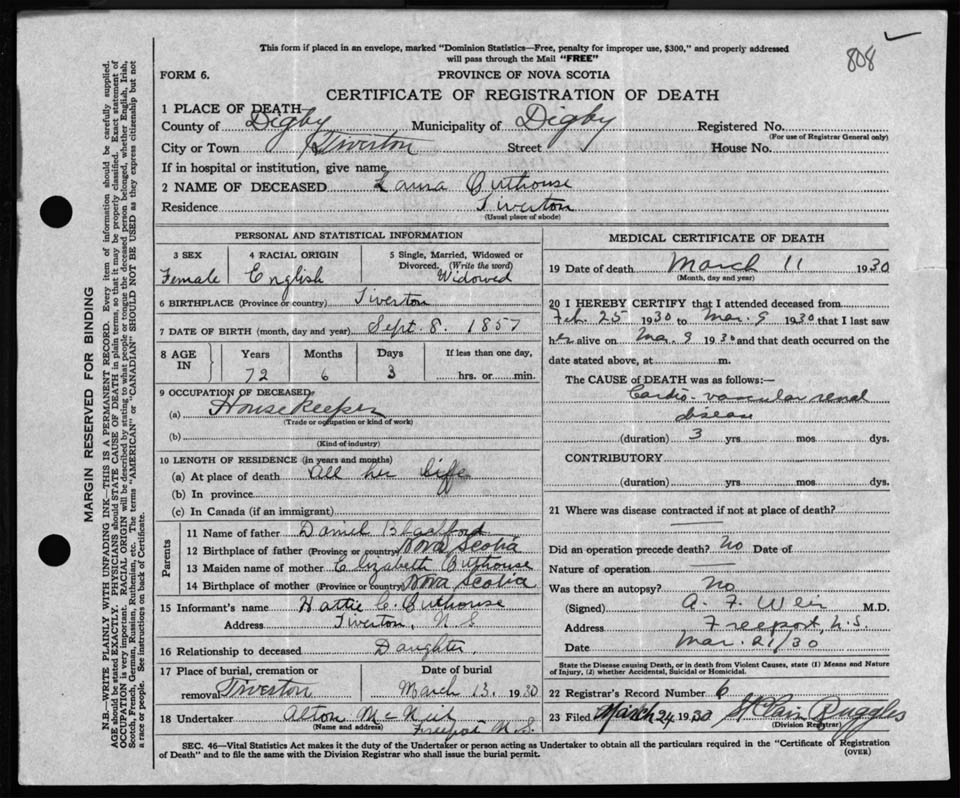 This form if placed in an envelope, marked "Dominion Statistics—Free, penalty for improper use, $300," and properly addressed
will pass through the Mail "FREE"
808
FORM 6.
PROVINCE OF NOVA SCOTIA
CERTIFICATE OF REGISTRATION OF DEATH
1 PLACE OF DEATH
County of Digby Municipality of Digby Registered No.
(For use of Registrar General only)
City or Town Tiverton Street House No.
If in hospital or institution, give name
2 NAME OF DECEASED Laura Outhouse
Residence Tiverton
(Usual place of abode)
PERSONAL AND STATISTICAL INFORMATION
3 SEX 4 RACIAL ORIGIN 5 Single, Married, Widowed or
Divorced. (Write the word)
Female English Widowed
6 BIRTHPLACE (Province or country) Tiverton
7 DATE OF BIRTH (month, day and year) Sept. 8. 1857
8 AGE IN Years Months Days If less than one day,
72 6 3 hrs. or min.
9 OCCUPATION OF DECEASED
(a) Housekeeper
(Trade or occupation or kind of work)
(b)
(Kind of industry)
10 LENGTH OF RESIDENCE (in years and months)
(a) At place of death All her life
(b) In province
(c) In Canada (if an immigrant)
Parents
11 Name of father Daniel Blackford
12 Birthplace of father (Province or country) Nova Scotia
13 Maiden name of mother Elizabeth Outhouse
14 Birthplace of mother (Province or country) Nova Scotia
15 Informant's name Hattie C. Outhouse
Address Tiverton, N S
16 Relationship to deceased Daughter.
17 Place of burial, cremation or Date of burial
removal Tiverton March 13. 1930
18 Undertaker Alton McNeil
(Name and address) Freeport N.S.
MEDICAL CERTIFICATE OF DEATH
19 Date of death March 11 1930
(Month, day and year)
20 I HEREBY CERTIFY that I attended deceased from
Feb. 25 1930 to Mar. 9 1930 that I last saw
her alive on Mar. 9 1930 and that death occurred on the
date stated above, at m.
The CAUSE of DEATH was as follows:—
Cardio-vascular renal
disease
(duration) 3 yrs. mos dys.
CONTRIBUTORY
(duration) yrs. mos. dys.
21 Where was disease contracted if not at place of death?
Did an operation precede death? No Date of
Nature of operation
Was there an autopsy? No
(Signed) A. F. Weir M.D.
Address Freeport, N.S.
Date Mar 21/30
State the Disease causing Death, or in death from Violent Causes, state (1) Means and Nature
of Injury, (2) whether Accidental, Suicidal or Homicidal.
22 Registrar's Record Number 6
23 Filed March 24 1930 St Clair Ruggles
(Division Registrar)
SEC. 46—Vital Statistics Act makes it the duty of the Undertaker or person acting as Undertaker to obtain all the particulars required in the "Certificate of Registration
of Death" and to file the same with the Division Registrar who shall issue the burial permit.
(OVER)
MARGIN RESERVED FOR BINDING
N.B.—WRITE PLAINLY WITH UNFADING INK—THIS IS A PERMANENT RECORD. Every item of information should be carefully supplied.
AGE should be stated EXACTLY. PHYSICIANS should STATE CAUSE OF DEATH in plain terms, so that it may be properly classified. Exact statement of
OCCUPATION is very important. RACIAL ORIGIN will be described by stating to what people or tongue the deceased person belonged, whether English, Irish,
Scotch, French, German, Russian, Ruthenian, etc. The terms "AMERICAN" or "CANADIAN" SHOULD NOT BE USED as they express citizenship but not
a race or people. See instructions on back of Certificate.